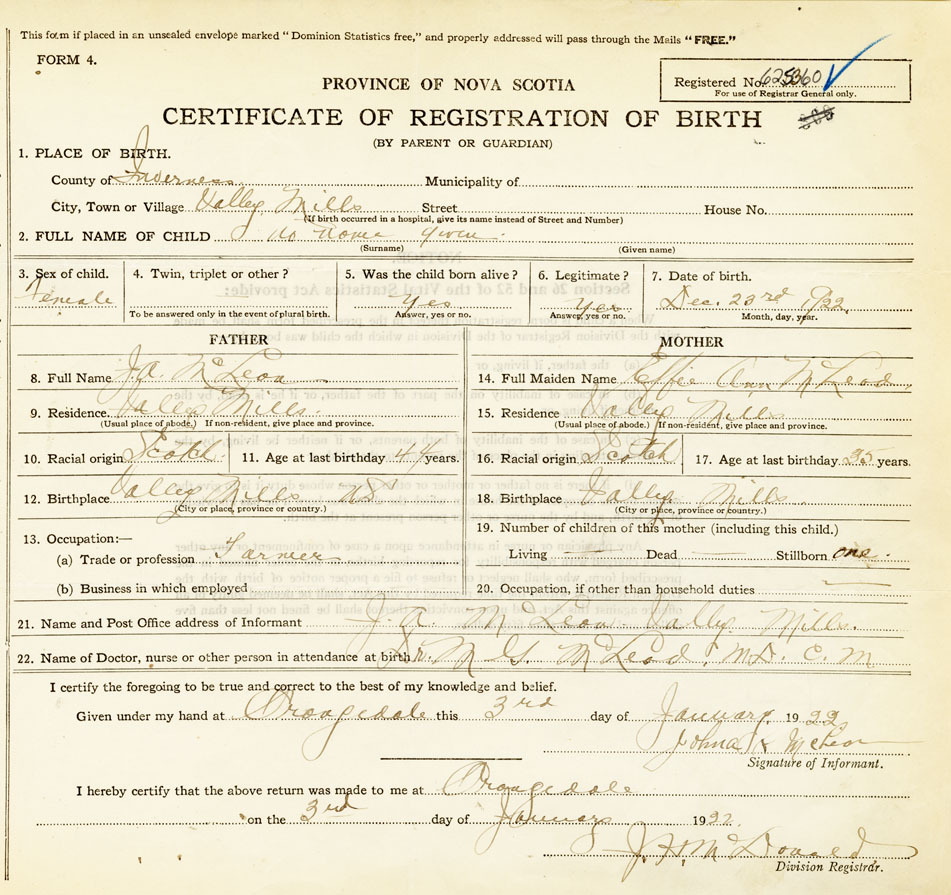 This form if placed in an unsealed envelope marked "Dominion Statistics free," and properly addressed will pass through the Mails "FREE."
FORM 4.
Registered No. 625360
For use of Registrar General only.
PROVINCE OF NOVA SCOTIA
CERTIFICATE OF REGISTRATION OF BIRTH
(BY PARENT OR GUARDIAN)
1. PLACE OF BIRTH.
County of Inverness Municipality of
City, Town or Village Valley Mills Street House No.
(If birth occurred in a hospital, give its name instead of Street and Number)
2. FULL NAME OF CHILD no name given.
(Surname) (Given name)
3. Sex of child. 4. Twin, triplet or other? 5. Was the child born alive? 6. Legitimate? 7. Date of birth.
Female Yes Yes Dec. 23rd 1922
To be answered only in the event of plural birth. Answer, yes or no. Answer, yes or no. Month, day, year.
FATHER MOTHER
8. Full Name J. A. McLean 14. Full Maiden Name Effie Ann McLeod
9. Residence. Valley Mills. 15. Residence Valley Mills
(Usual place of abode.) If non-resident, give place and province. (Usual place of abode.) If non-resident, give place and province.
10. Racial origin Scotch 11. Age at last birthday 44 years. 16. Racial origin Scotch 17. Age at last birthday 35 years.
12. Birthplace Valley Mills NS 18. Birthplace Valley Mills
(City or place, province or country.) (City or place, province or country.)
13. Occupation:— 19. Number of children of this mother (including this child.)
(a) Trade or profession Farmer Living — Dead — Stillborn one.
(b) Business in which employed 20. Occupation, if other than household duties —
21. Name and Post Office address of Informant J. A. McLean Valley Mills.
22. Name of Doctor, nurse or other person in attendance at birth Dr. M G. McLeod, M.D. C. M
I certify the foregoing to be true and correct to the best of my knowledge and belief.
Given under my hand at Orangedale this 3rd day of January 1922
John McLean
Signature of Informant.
I hereby certify that the above return was made to me at Orangedale
on the 3rd day of January 1922
J. H. McDonald
Division Registrar.